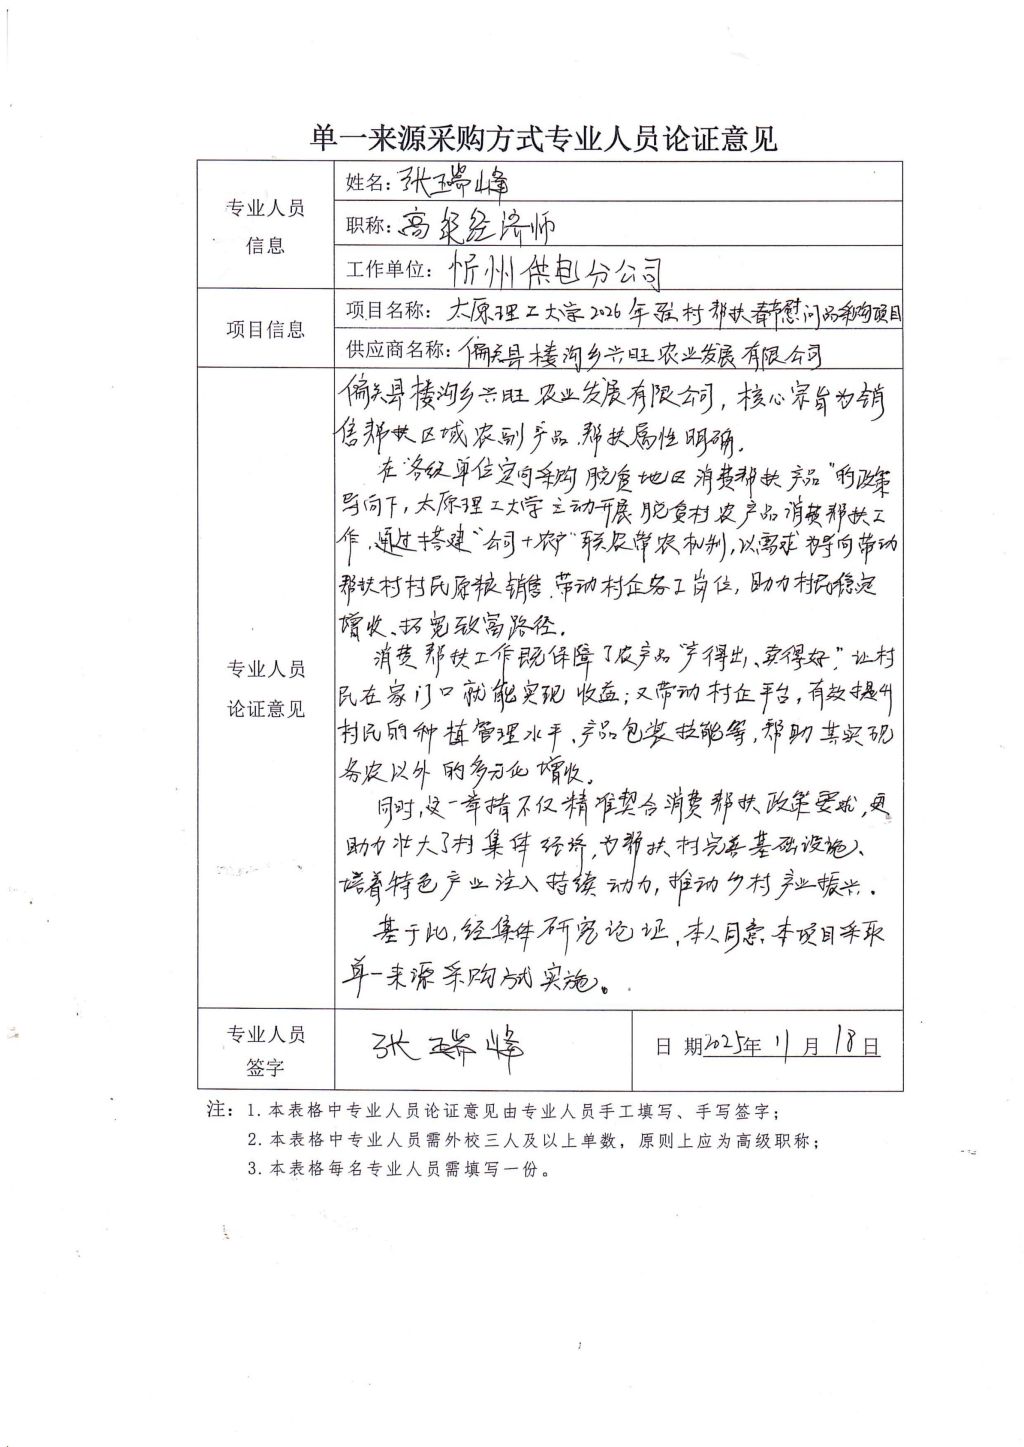 单一来源采购方式专业人员论证意见
专业人员
信息
姓名：张瑞峰
职称：高级经济师
工作单位：忻州供电分公司
项目信息
项目名称：太原理工大学2026年驻村帮扶春节慰问品采购项目
供应商名称：偏关县楼沟乡兴旺农业发展有限公司
专业人员
论证意见
偏关县楼沟乡兴旺农业发展有限公司，核心宗旨为销
售帮扶区域农副产品，帮扶属性明确。
在“各级单位定向采购脱贫地区消费帮扶产品”的政策
导向下，太原理工大学主动开展脱贫村农产品消费帮扶工
作，通过搭建“公司+农户”联农带农机制，以需求为导向带动
帮扶村村民原粮销售、带动村企务工岗位，助力村民稳定
增收、拓宽致富路径。
消费帮扶工作既保障了农产品“产得出、卖得好”，让村
民在家门口就能实现收益；又带动村企平台，有效提升
村民的种植管理水平、产品包装技能等，帮助其实现
务农以外的多元化增收。
同时，这一举措不仅精准契合消费帮扶政策要求，更
助力壮大了村集体经济，为帮扶村完善基础设施、
培养特色产业注入持续动力，推动乡村产业振兴。
基于此，经集体研究论证，本人同意本项目采取
单一来源采购方式实施。
专业人员
签字
张瑞峰
日 期2025年11月18日
注：1.本表格中专业人员论证意见由专业人员手工填写、手写签字；
2.本表格中专业人员需外校三人及以上单数，原则上应为高级职称；
3.本表格每名专业人员需填写一份。